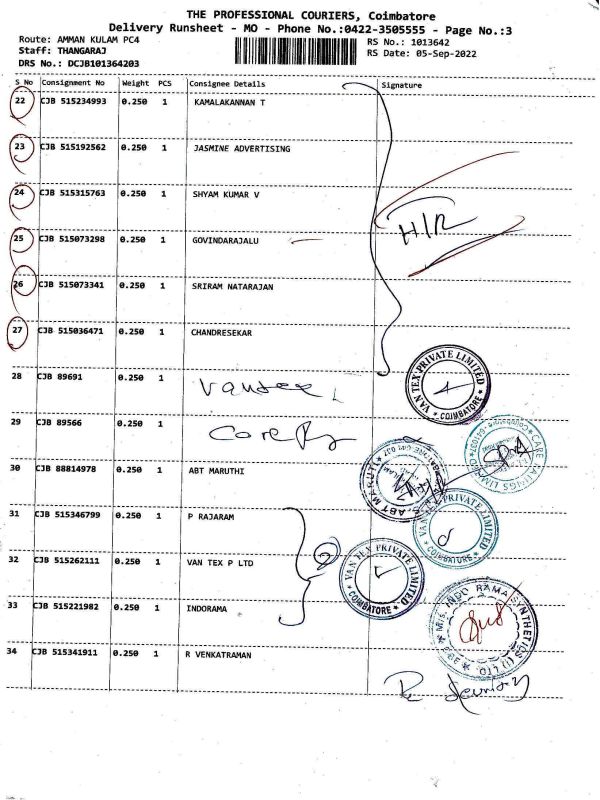 THE PROFESSIONAL COURIERS, Coimbatore
Delivery Runsheet - MO - Phone No.:0422-3505555 - Page No.:3
Route: AMMAN KULAM PC4
Staff: THANGARAJ
DRS No.: DCJB101364203
RS No.: 1013642
RS Date: 05-Sep-2022
S No Consignment No Weight PCS Consignee Details Signature
22 CJB 515234993 0.250 1 KAMALAKANNAN T
23 CJB 515192562 0.250 1 JASMINE ADVERTISING
24 CJB 515315763 0.250 1 SHYAM KUMAR V
H/R
25 CJB 515073298 0.250 1 GOVINDARAJALU
26 CJB 515073341 0.250 1 SRIRAM NATARAJAN
27 CJB 515036471 0.250 1 CHANDRESEKAR
28 CJB 89691 0.250 1
VAN TEX PRIVATE LIMITED
COIMBATORE
29 CJB 89566 0.250 1 Care
CARE RATINGS LIMITED
30 CJB 88814978 0.250 1 ABT MARUTHI
ABT MARUTI
VAN TEX PRIVATE LIMITED
COIMBATORE
31 CJB 515346799 0.250 1 P RAJARAM
32 CJB 515262111 0.250 1 VAN TEX P LTD
2
VAN TEX PRIVATE LIMITED
COIMBATORE
33 CJB 515221982 0.250 1 INDORAMA
M/s. INDO RAMA SYNTHETICS (I) LTD
34 CJB 515341911 0.250 1 R VENKATRAMAN